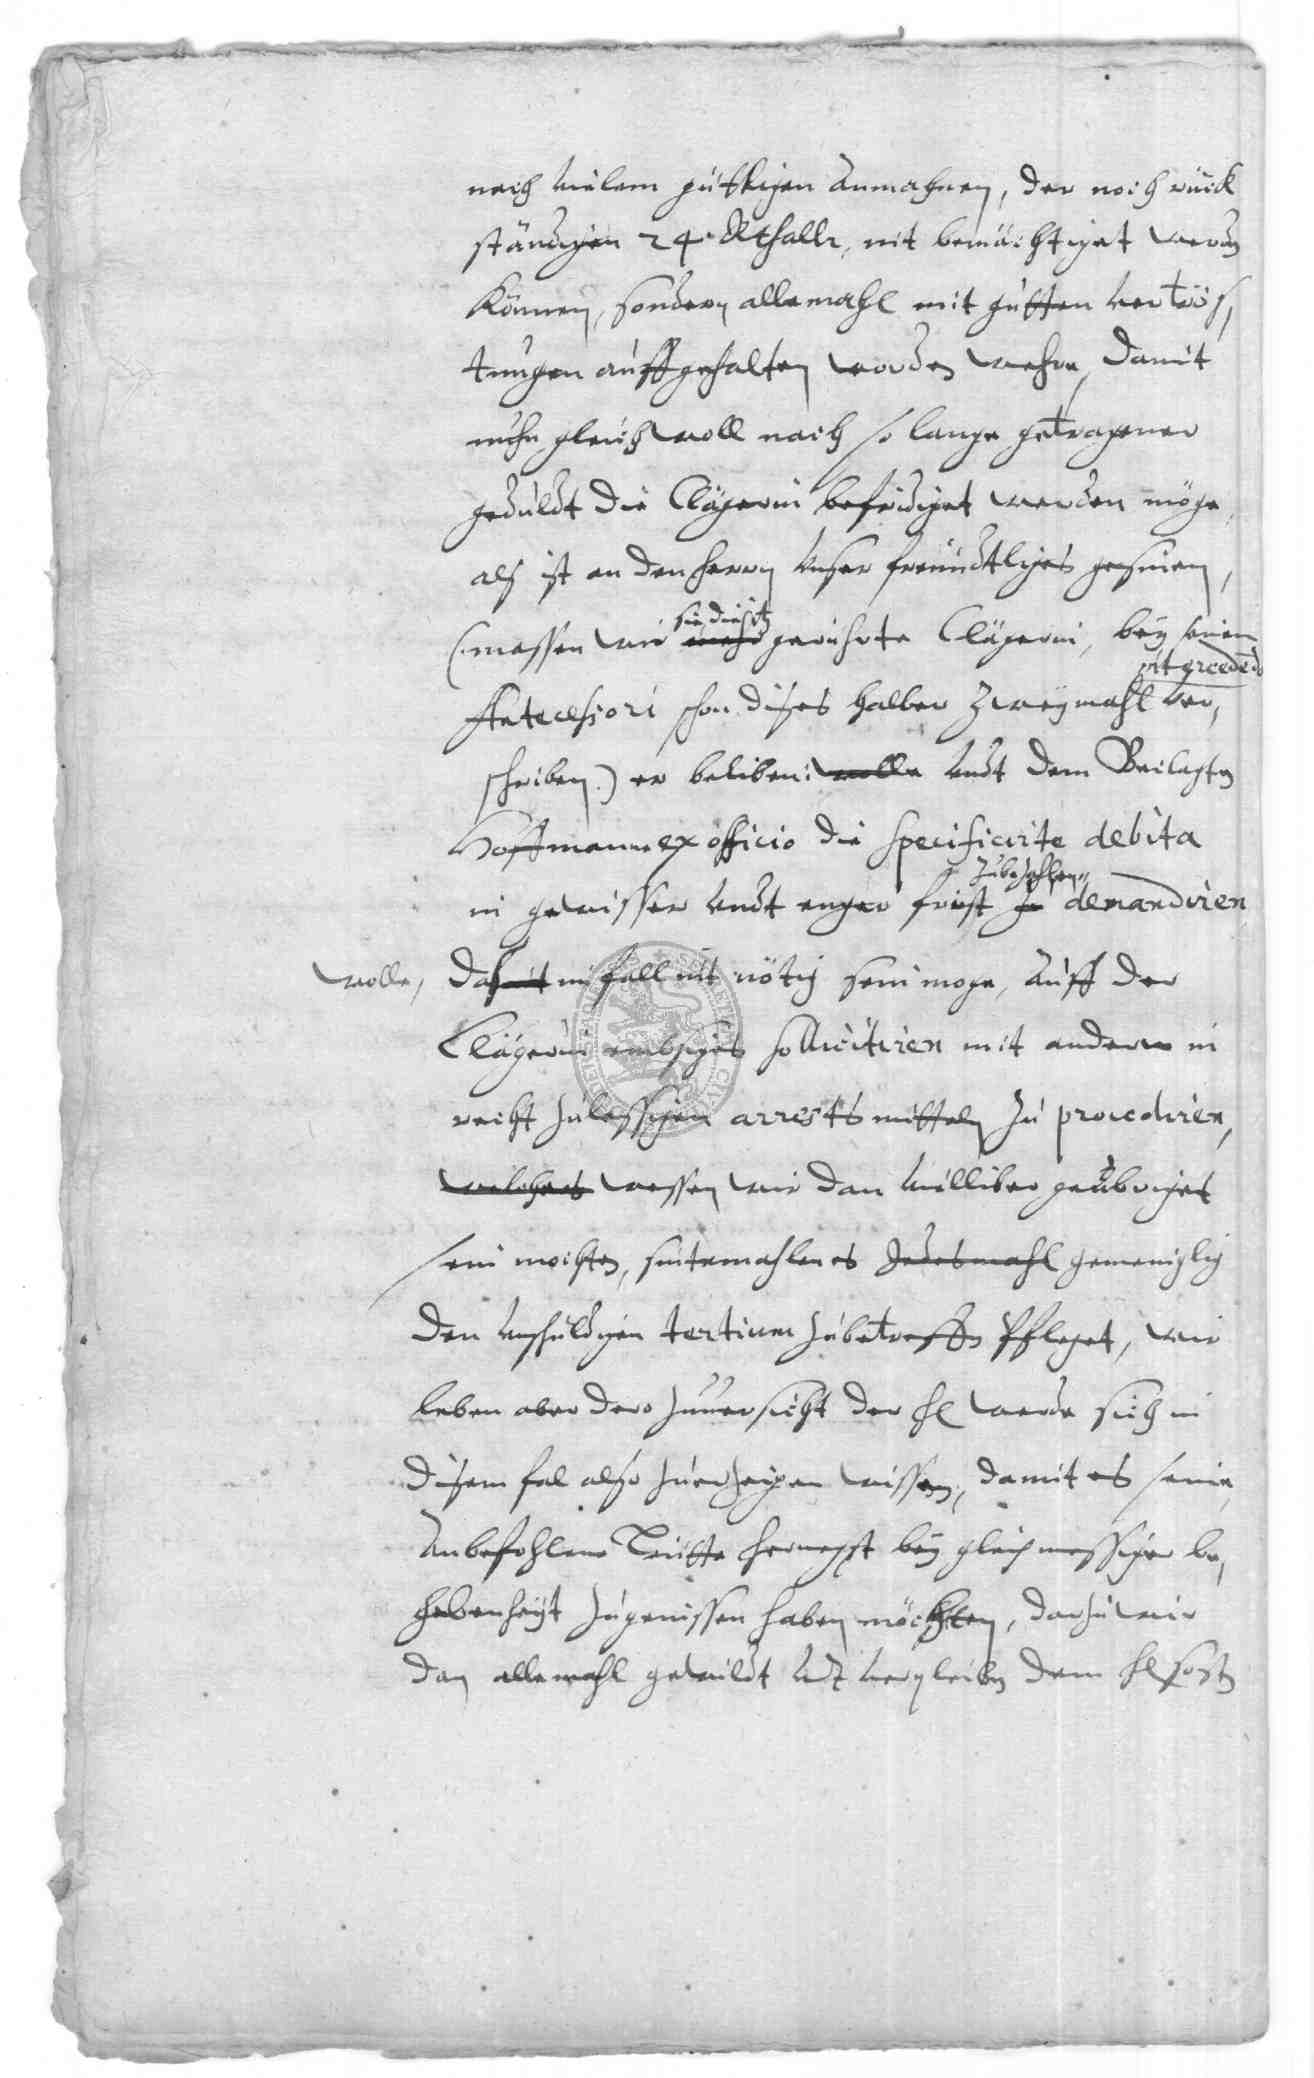 nach vielem gütlichen anmahnen, der noch rück
ständigen 24 Rthallr, nit bemächtiget werden
können, sondern allemahl mit gutten vertrös,
tungen auffgehalten worden wehre, damit
nuhn gleichwoll nach so lange getragener
geduldt die Clägerin befridiget werden möge,
alß ist an den herrn unser freundtliches gesinnen,
(massen wir sie dießfalß mehr gerührte Clägerin, bey seinem
intercedendo
Antecessori schon dieses halber zweymahl ver,
schriben.) er belieben wolle undt dem Beclagten
Hoffmann ex officio die specificirte debita
in gewisser undt enger frist zu demandiren
zubezahlen
wolle, daß mit im fall nit nötig sein moge, auff der
Clägerin embsiges sollicitiren mit andern in
recht zulessigen arrestsmitteln zu procediren,
welches wessen wir dan viellieber geübriget
sein mochten, sintemahlen es jedesmahl gemeniglich
den unschuldigen tertium zubetreffen pfleget, wir
leben aber dero zuversicht der H werde sich in
disem fal also zuerzeigen wissen, damit es seine
anbefohlene Leutte hernegst bey gleichmessiger be,
gebenheyt zugenissen haben möchten, darzu wir
dan allemahl gewildt undt verpleiben dem H sost